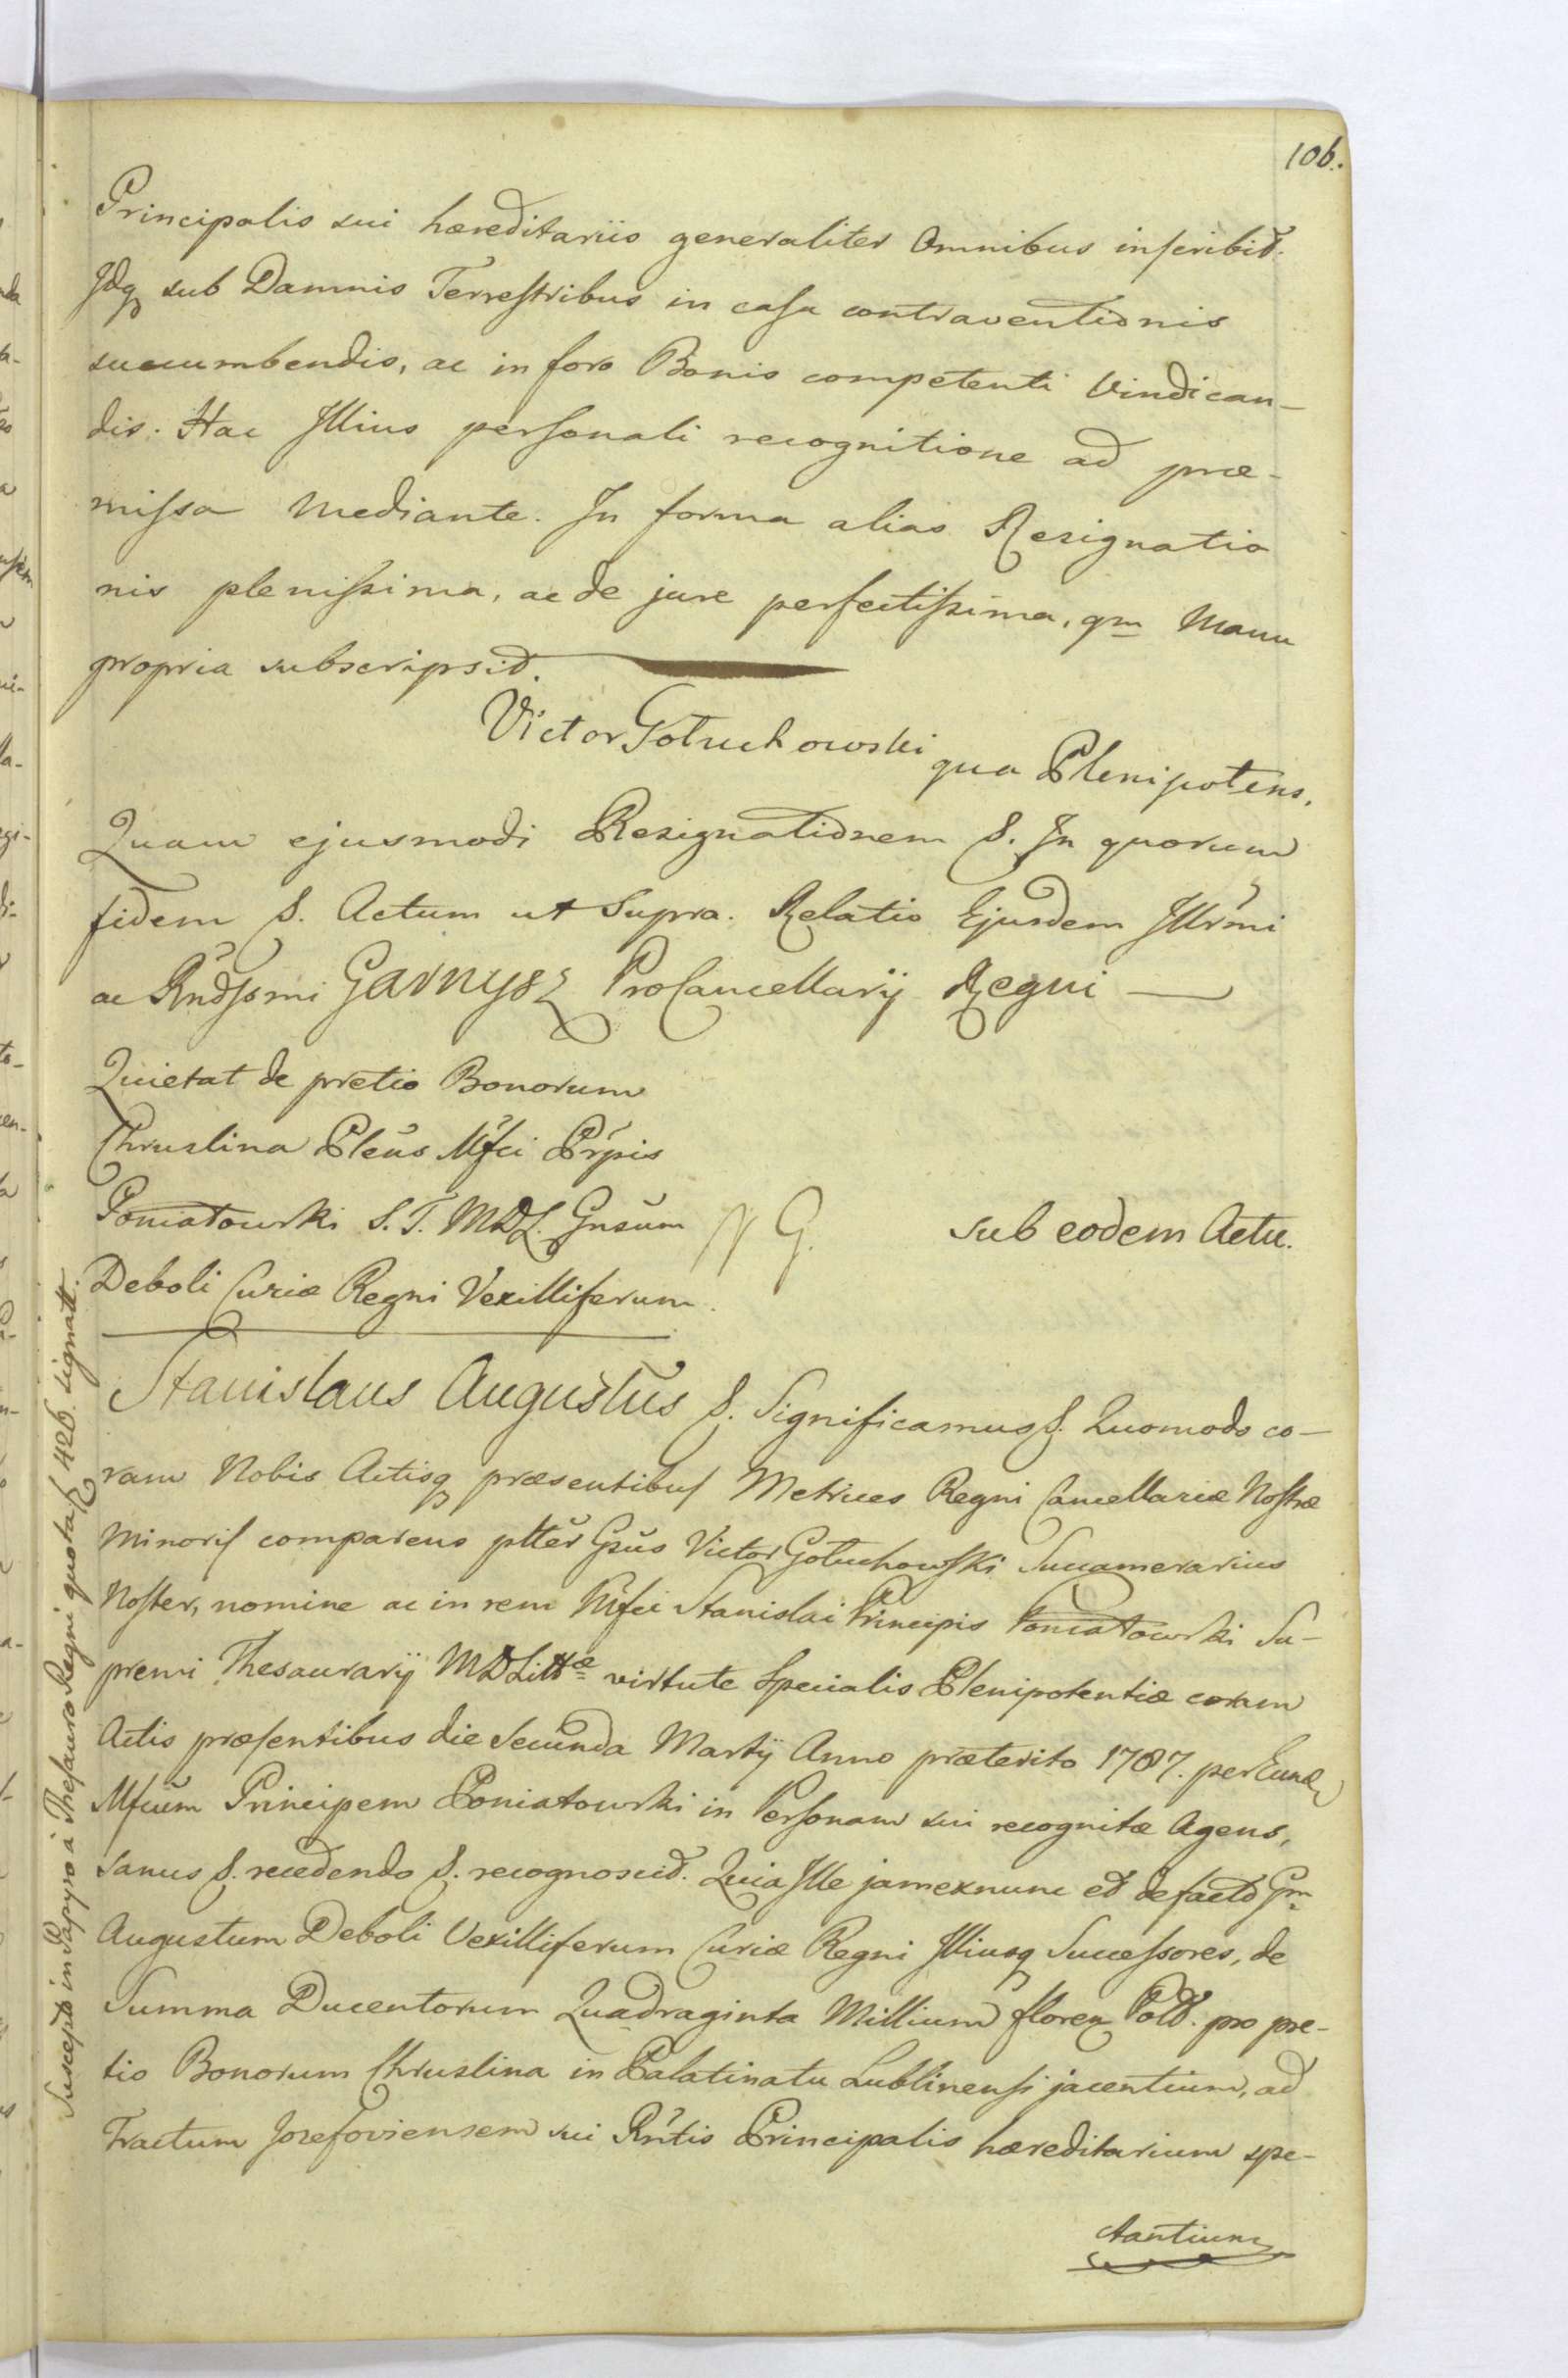 106.
Principalis sui hæreditariis generaliter Omnibus inscribit.
Idq sub Damnis Terrestribus in casu contraventionis
succumbendis, ac in foro Bonis competenti Vindican-
dis. Hac Illius personali recognitione ad præ-
missa Mediante. In forma alias Resignatio
nis plenissima, ac de jure perfectissima, qm Manu
propria subscripsit.
Victor Gołuchowski qua Plenipotens.
Quam ejusmodi Resignationem S. In quorum
fidem S. Actum ut Supra. Relatio Ejusdem Illrmi
ac Rndssmi Garnysz ProCancellarij Regni —
Quietat de pretio Bonorum
Chruslina Plēus Mfci Prpis
Poniatowski S. T. MDL. Gnsum
Deboli Curiæ Regni Vexilliferum.
N G.
sub eodem Actu.
Stanislaus Augustus S. Significamus S. Quomodo co-
ram Nobis Actisq præsentibus Metrices Regni Cancellariæ Nostræ
Minoris comparens pltter Gsus Victor Gołuchowski Succamerarius
Noster, nomine ac in rem Mfci Stanislai Principis Poniatowski Su-
premi Thesaurarij MDLittæ virtute Specialis Plenipotentiæ coram
Actis præsentibus die Secunda Martij Anno præterito 1787. per Eund
Mfcum Principem Poniatowski in Personam sui recognitæ Agens,
sanus S. recedendo S. recognoscit. Quia Ille jam exnunc et de facto Gm
Augustum Deboli Vexilliferum Curiæ Regni Illiusq Successores, de
Summa Ducentorum Quadraginta Millium floren Pold. pro pre-
tio Bonorum Chruslina in Palatinatu Lublinensi jacentium, ad
Tractum Jozefoviensem sui Rntis Principalis hæreditarium spe-
ctantium
Suscepta in Papyro à Thesauro Regni quota 426. signatt.